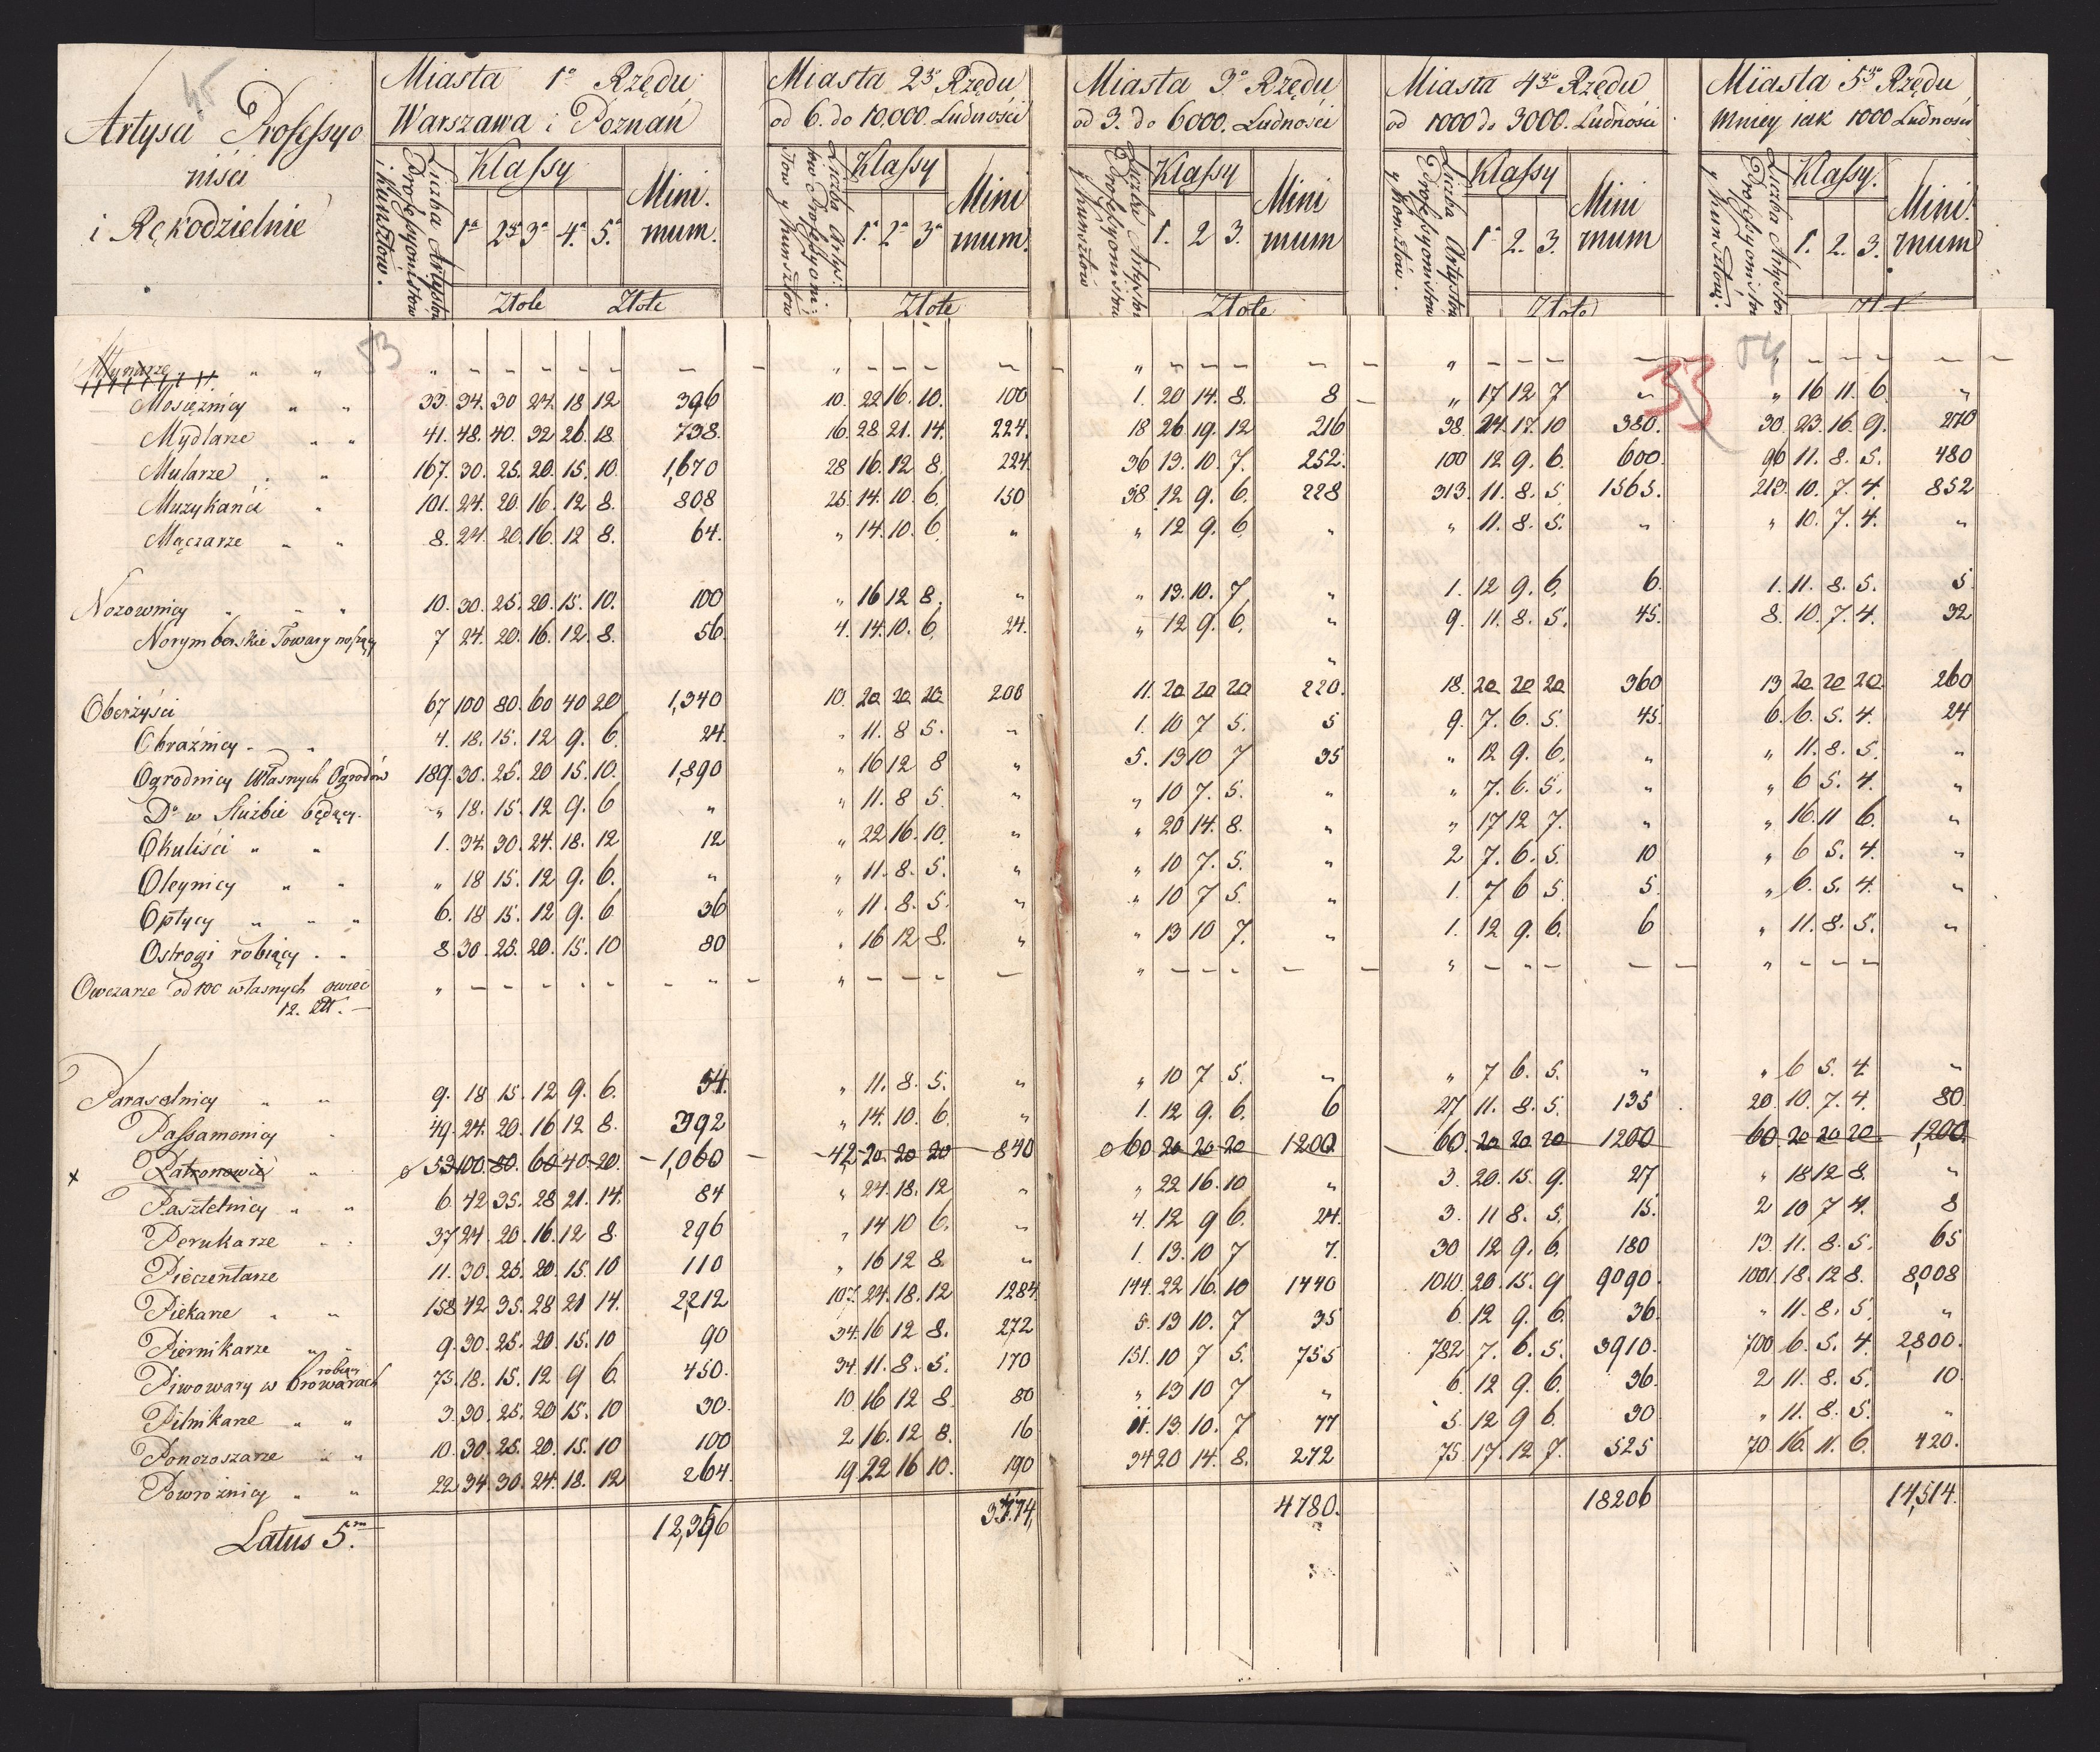 45
Artysci Professyo
niści
i Rękodzielnie
Miasta 1º Rzędu
Warszawa i Poznań
Miasta 2go Rzędu
od 6. do 10.000. Ludności
Miasta 3º Rzędu
od 3. do 6000. Ludności
Miasta 4go Rzędu
od 1000 do 3000. Ludności
Miasta 5go Rzędu
Mniey iak 1000 Ludności
Liczba Artystow Professyonistow i Kunsztow.
Klassy
1ª 2ga 3ª 4ª 5ª
Mini.
mum.
Złote Złote
Klassy
1ª 2ª 3ª
Mini
mum.
Złote
Liczba Artystow Professyonistow y Kunsztow
Klassy
1. 2 3.
Mini
mum
Złote
Liczba Artystow Professyonistow y Konsztow.
Klassy
1ª 2. 3.
Mini
mum
Złote
Liczba Artystow Professyonistow y Kunsztow.
Klassy.
1. 2. 3.
Mini.
mum
53 33 54
Młynarze " " " – – – – – – – " – – – – – " – – – – – " – – – – – " – – – – –
Mosiężnicy " " 33. 34. 30 24. 18 12 396 10. 22 16. 10. 100 1. 20 14. 8. 8 – " 17 12 7 " " 16 11. 6. "
Mydlarze " " 41. 48. 40. 32 26. 18. 738. 16. 28 21. 14. 224. 18 26 19. 12 216 38. 24. 17. 10 380. 30. 23. 16. 9. 270
Mularze . " 167. 30. 25. 20. 15. 10. 1,670 28 16. 12 8. 224. 36 13. 10. 7. 252. 100 12 9. 6. 600. 96 11. 8. 5. 480
Muzykańci " 101. 24. 20. 16. 12 8. 808 25. 14. 10. 6. 150 38. 12 9. 6. 228 313. 11. 8. 5. 1565. 213. 10. 7. 4. 852
Mączarze " " 8. 24. 20. 16. 12 8. 64. " 14. 10. 6. " " 12 9. 6 " " 11. 8. 5. " " 10. 7. 4. "
Nozownicy " " " 10. 30. 25. 20. 15. 10. 100 " 16 12 8. " " 13. 10. 7 " 1. 12 9. 6. 6. 1. 11. 8. 5. 5.
Norymberskie Towary noszący 7 24. 20. 16. 12. 8. 56. 4. 14. 10. 6. 24. " 12 9. 6. " 9. 11. 8. 5. 45. 8. 10. 7. 4. 32
"
Oberżyści 67 100 80. 60 40 20 1,340 10. 20 20 20 200 11. 20 20 20 220. 18. 20 20 20 360 13 20. 20 20. 260
Obraźnicy - " 4. 18. 15. 12 9. 6. 24. " 11. 8 5. " 1. 10 7 5. 5 9. 7. 6. 5. 45. 6. 6. 5. 4. 24
Ogrodnicy Własnych Ogrodów 189. 30. 25. 20 15. 10. 1,890 " 16 12 8 " 5. 13 10 7 35 " 12 9. 6. " " 11. 8. 5. "
Dº w Służbie będący. " 18. 15. 12 9. 6 " " 11. 8 5 " " 10 7. 5. " " 7. 6. 5. " " 6 5. 4. "
Okuliści " " 1. 34. 30. 24. 18. 12 12 " 22 16. 10. " " 20 14. 8. " " 17 12 7. " " 16. 11 6. "
Oleynicy " " " 18 15. 12 9. 6. " " 11. 8. 5. " " 10 7. 5. " 2 7. 6. 5. 10 " 6 5. 4. "
Optycy " " " 6. 18 15. 12 9. 6 36 " 11. 8. 5. " " 10 7 5. " 1. 7 6 5 5. " 6. 5. 4. "
Ostrogi robiący . . 8. 30. 25. 20. 15. 10 80 . 16 12 8. " " 13 10 7. " 1. 12 9. 6. 6 " 11. 8. 5. "
Owczarze od 100 własnych owiec " – – – – – – – – " – – – – " – – – – – " – – – – – " – – –
12. Złł. –
Parasolnicy " " 9. 18 15. 12 9. 6. 54. " 11. 8. 5. " " 10 7 5. " " 7 6. 5. " " 6 5. 4 "
Passamonicy . 49. 24. 20. 16 12 8. 392 " 14. 10. 6. " 1. 12 9. 6. 6 27 11. 8. 5. 135 20. 10. 7. 4. 80.
x Patronowie " 53 100. 80. 60 40. 20. 1,060 42 20. 20 20 840 60. 20 20 20 1200 60. 20 20 20 1200 60 20 20 20. 1,200.
Pasztetnicy " " 6. 42 35. 28 21. 14. 84 " 24. 18. 12 " " 22 16. 10 " 3. 20. 15. 9. 27 " 18 12 8. "
Perukarze . . 37 24. 20. 16. 12 8. 296 " 14 10 6. " 4. 12 9 6. 24. 3. 11 8. 5. 15. 2 10 7 4. 8
Pieczentarze 11. 30. 25. 20. 15. 10 110 " 16 12 8. " 1. 13. 10 7 7. 30 12 9. 6. 180 13. 11. 8. 5. 65
Piekarze " " 158 42 35. 28 21 14. 2,212 107. 24. 18. 12 1284. 144. 22 16. 10 1440 1010. 20. 15. 9 9090. 1001. 18. 12 8. 8,008
Piernikarze " " 9. 30. 25. 20. 15. 10 90 34. 16 12 8. 272 5. 13 10. 7 35 6. 12 9. 6. 36. " 11. 8. 5. "
robiący
Piwowary w browarach 75. 18. 15. 12 9 6. 450. 34. 11. 8. 5. 170 151. 10 7 5. 755 782 7. 6. 5. 3910. 700 6. 5. 4. 2,800.
Pilnikarze " " 3. 30. 25. 20 15. 10 30. 10. 16 12 8. 80 " 13 10 7 " 6. 12 9. 6. 36. 2 11. 8. 5. 10.
Ponczoszarze " " 10. 30. 25. 20. 15. 10 100 2 16. 12 8. 16 11. 13. 10. 7 77 5. 12 9 6. 30 " 11. 8. 5. "
Powroźnicy " " 22. 34. 30. 24. 18. 12 264. 19. 22 16 10. 190 34 20 14. 8. 272 75. 17. 12 7. 525 70 16. 11. 6. 420.
Latus 5.m 4780. 18206 14,514.